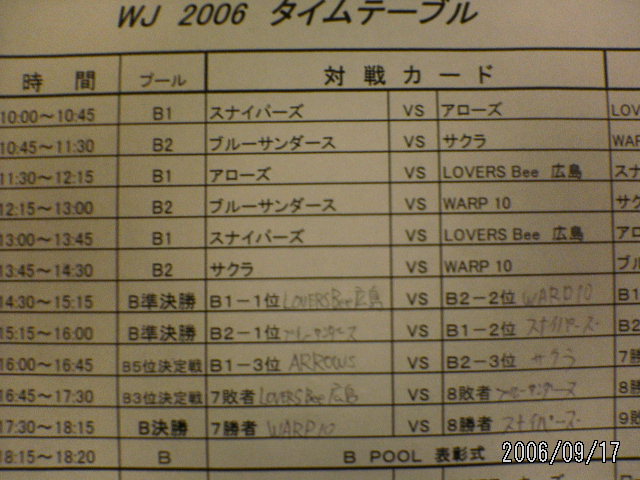 WJ 2006 タイムテーブル
時 間 プール 対 戦 カ ー ド
10:00～10:45 B1 スナイパーズ VS アローズ LOV
10:45～11:30 B2 ブルーサンダース VS サクラ WAR
11:30～12:15 B1 アローズ VS LOVERS Bee 広島 スナ
12:15～13:00 B2 ブルーサンダース VS WARP 10 サク
13:00～13:45 B1 スナイパーズ VS LOVERS Bee 広島 アロ
13:45～14:30 B2 サクラ VS WARP 10 ブル
14:30～15:15 B準決勝 B1－1位 LOVERS Bee広島 VS B2－2位 WARD10 B1
15:15～16:00 B準決勝 B2－1位 ブルーサンダース VS B1－2位 スナイパーズ B2
16:00～16:45 B5位決定戦 B1－3位 ARROWS VS B2－3位 サクラ 7勝
16:45～17:30 B3位決定戦 7敗者 LOVERS Bee広島 VS 8敗者 ブルーサンダース 8勝
17:30～18:15 B決勝 7勝者 WARP10 VS 8勝者 スナイパーズ 9敗
18:15～18:20 B B POOL 表彰式
2006/09/17